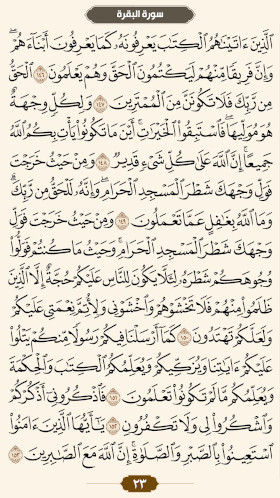 سورة البقرة
ٱلَّذِينَ ءَاتَيْنَٰهُمُ ٱلْكِتَٰبَ يَعْرِفُونَهُۥ كَمَا يَعْرِفُونَ أَبْنَآءَهُمْ ۖ
وَإِنَّ فَرِيقًا مِّنْهُمْ لَيَكْتُمُونَ ٱلْحَقَّ وَهُمْ يَعْلَمُونَ ١٤٦ ٱلْحَقُّ
مِن رَّبِّكَ فَلَا تَكُونَنَّ مِنَ ٱلْمُمْتَرِينَ ١٤٧ وَلِكُلٍّ وِجْهَةٌ
هُوَ مُوَلِّيهَا ۖ فَٱسْتَبِقُوا۟ ٱلْخَيْرَٰتِ ۚ أَيْنَ مَا تَكُونُوا۟ يَأْتِ بِكُمُ ٱللَّهُ
جَمِيعًا ۚ إِنَّ ٱللَّهَ عَلَىٰ كُلِّ شَىْءٍ قَدِيرٌ ١٤٨ وَمِنْ حَيْثُ خَرَجْتَ
فَوَلِّ وَجْهَكَ شَطْرَ ٱلْمَسْجِدِ ٱلْحَرَامِ ۖ وَإِنَّهُۥ لَلْحَقُّ مِن رَّبِّكَ ۗ
وَمَا ٱللَّهُ بِغَٰفِلٍ عَمَّا تَعْمَلُونَ ١٤٩ وَمِنْ حَيْثُ خَرَجْتَ فَوَلِّ
وَجْهَكَ شَطْرَ ٱلْمَسْجِدِ ٱلْحَرَامِ ۚ وَحَيْثُ مَا كُنتُمْ فَوَلُّوا۟
وُجُوهَكُمْ شَطْرَهُۥ لِئَلَّا يَكُونَ لِلنَّاسِ عَلَيْكُمْ حُجَّةٌ إِلَّا ٱلَّذِينَ
ظَلَمُوا۟ مِنْهُمْ فَلَا تَخْشَوْهُمْ وَٱخْشَوْنِى وَلِأُتِمَّ نِعْمَتِى عَلَيْكُمْ
وَلَعَلَّكُمْ تَهْتَدُونَ ١٥٠ كَمَآ أَرْسَلْنَا فِيكُمْ رَسُولًا مِّنكُمْ يَتْلُوا۟
عَلَيْكُمْ ءَايَٰتِنَا وَيُزَكِّيكُمْ وَيُعَلِّمُكُمُ ٱلْكِتَٰبَ وَٱلْحِكْمَةَ
وَيُعَلِّمُكُم مَّا لَمْ تَكُونُوا۟ تَعْلَمُونَ ١٥١ فَٱذْكُرُونِىٓ أَذْكُرْكُمْ
وَٱشْكُرُوا۟ لِى وَلَا تَكْفُرُونِ ١٥٢ يَٰٓأَيُّهَا ٱلَّذِينَ ءَامَنُوا۟
ٱسْتَعِينُوا۟ بِٱلصَّبْرِ وَٱلصَّلَوٰةِ ۚ إِنَّ ٱللَّهَ مَعَ ٱلصَّٰبِرِينَ ١٥٣
٢٣